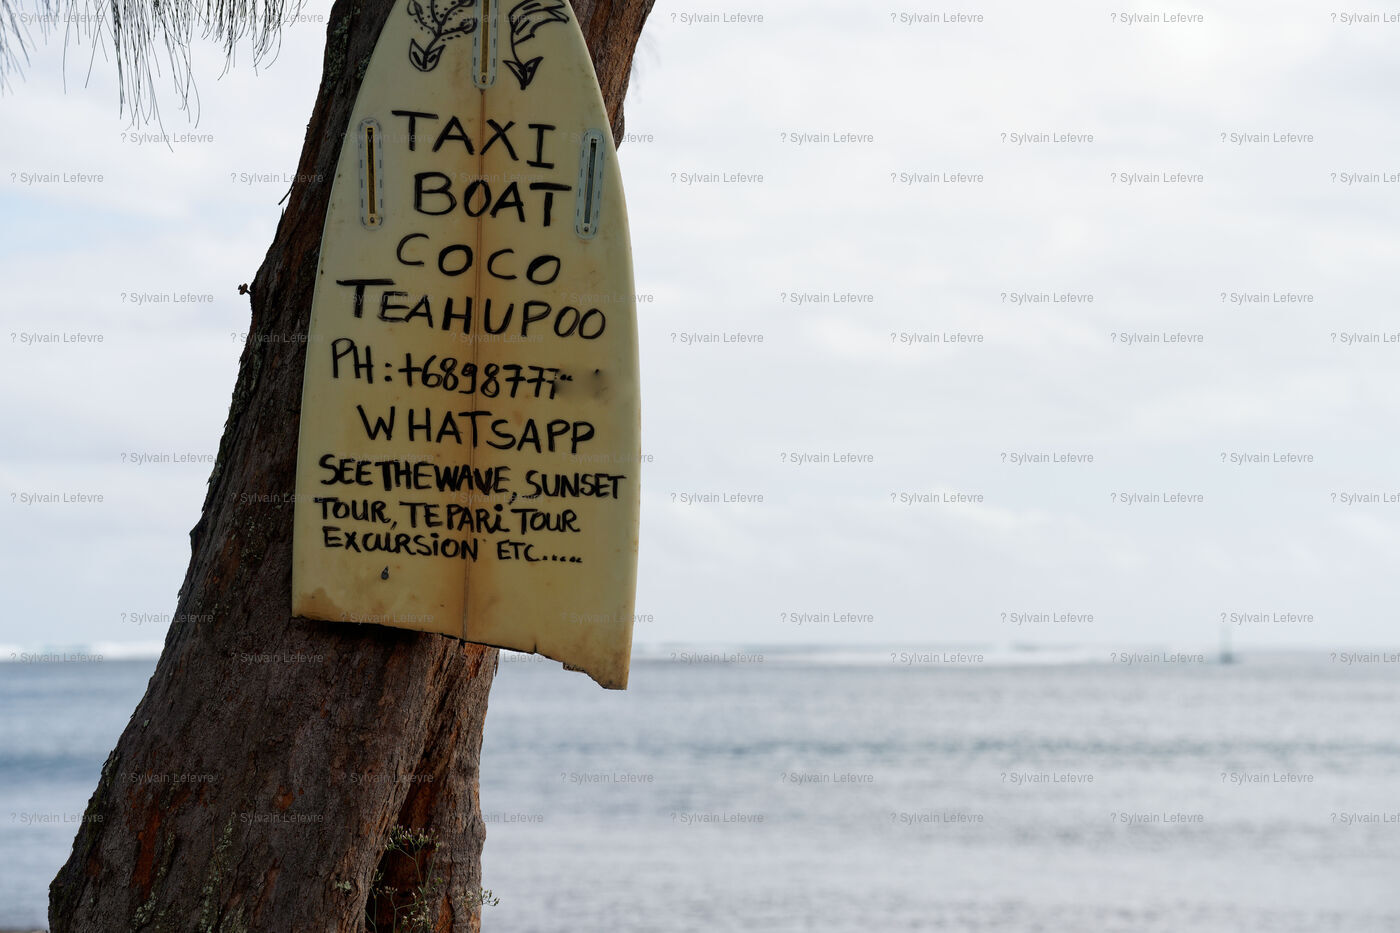 TAXI
BOAT
COCO
TEAHUPOO
PH:+6898777
WHATSAPP
SEE THE WAVE, SUNSET
TOUR, TE PARi TOUR
EXCURSiON ETC.....
? Sylvain Lefevre